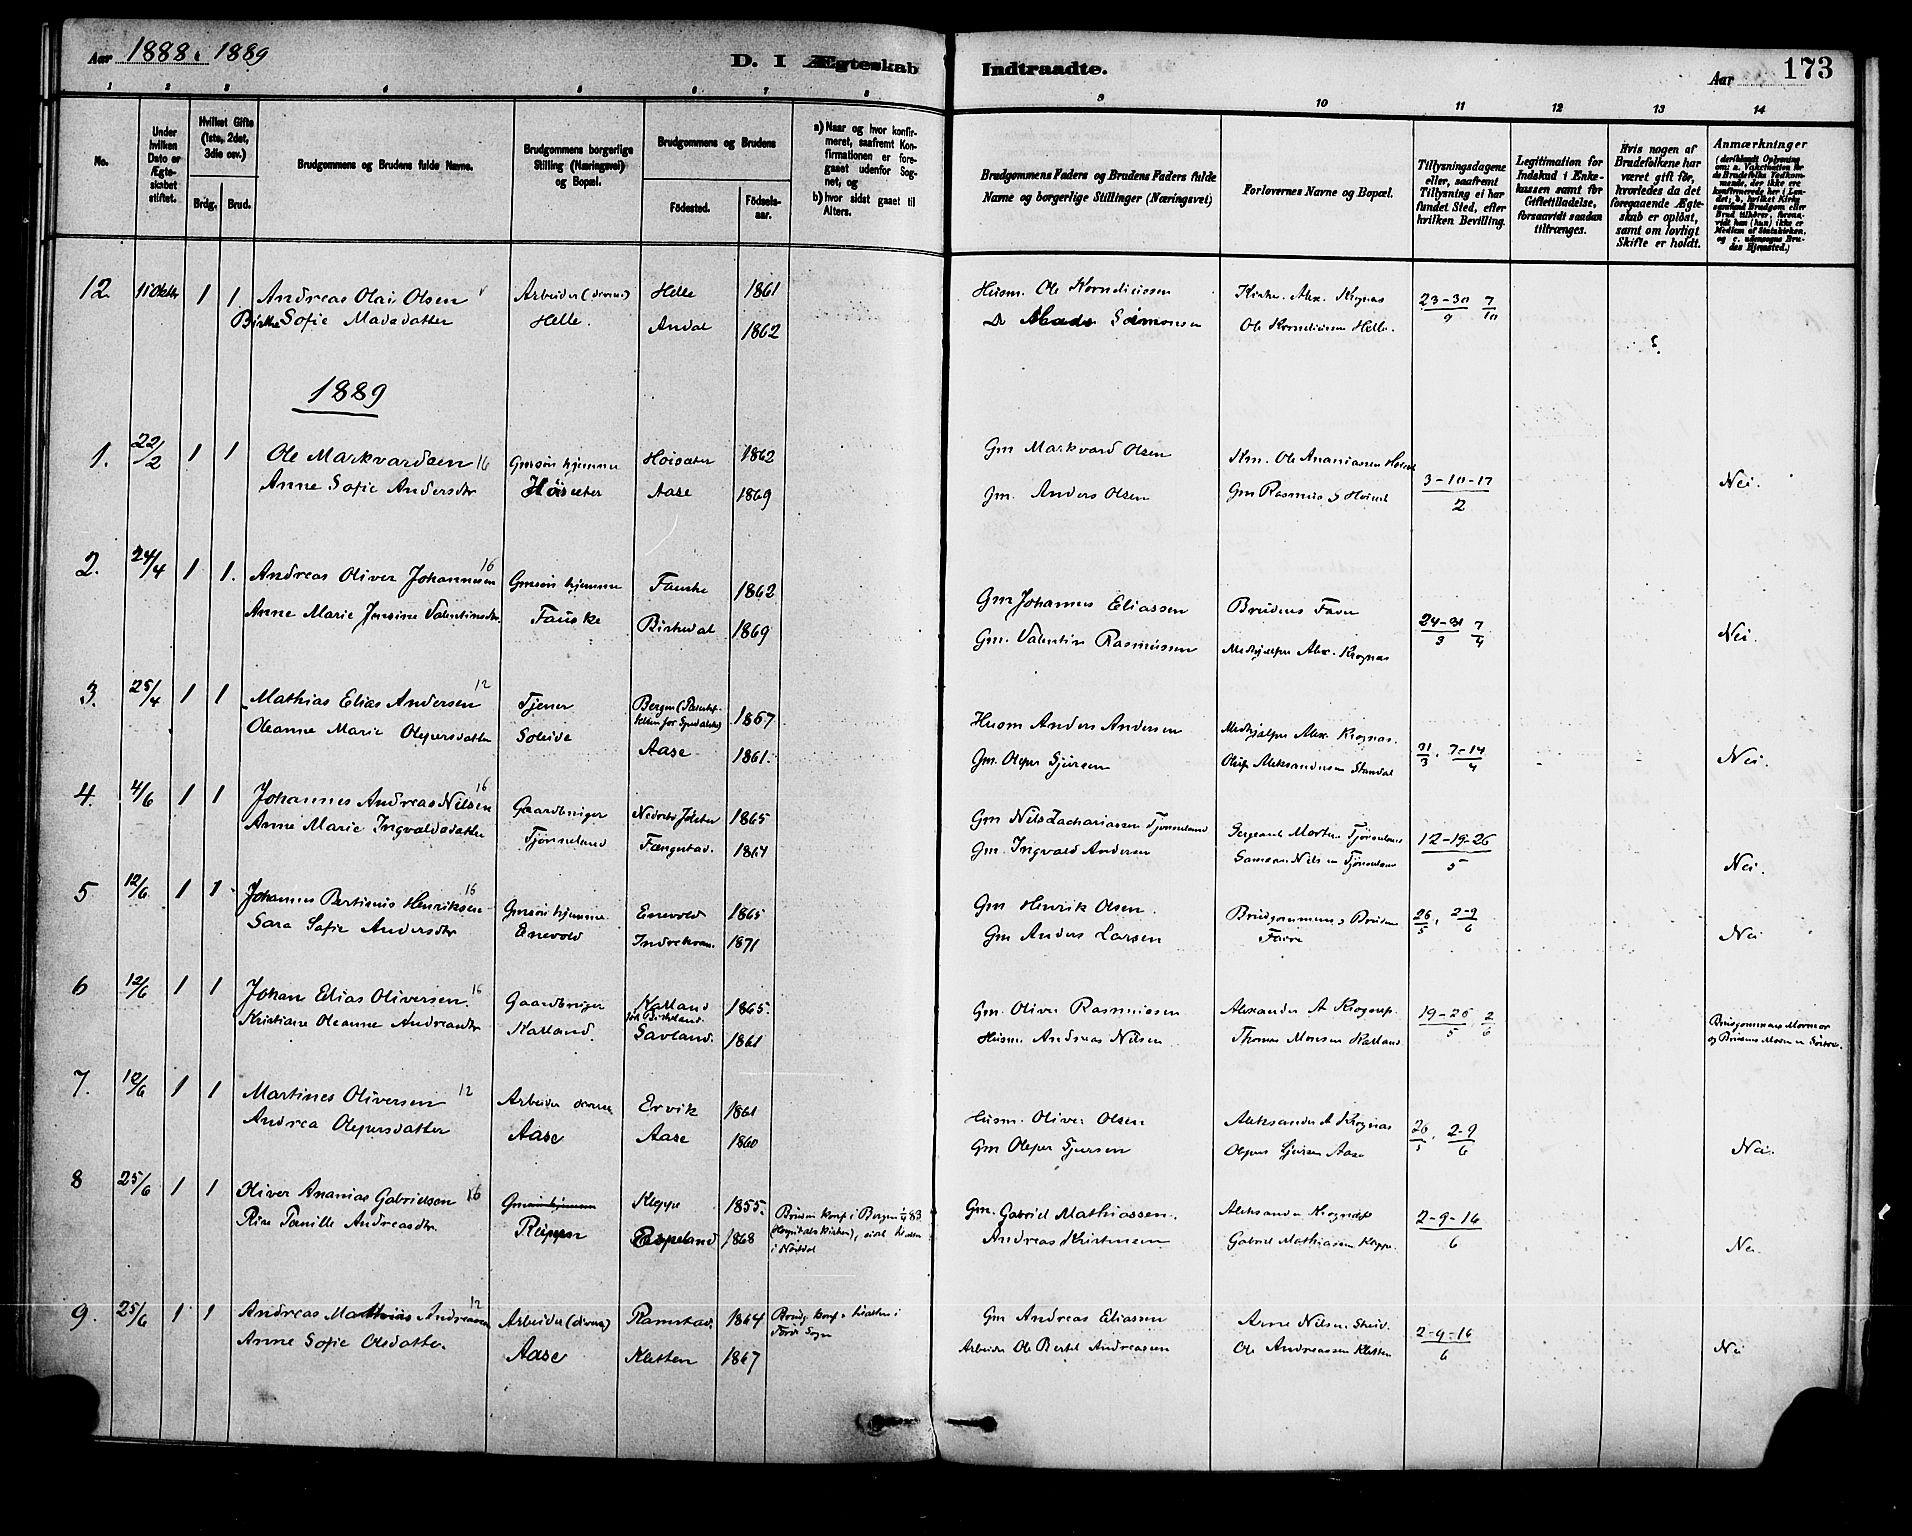 Aar 1888. 1889
D. I Ægteskab
Indtraadte.
Aar
173
1 2 3 4 5 6 7 8 9 10 11 12 13 14
No.
Under hvilken Dato er Ægteskabet stiftet.
Hvilket Gifte (1ste, 2det, 3die osv.)
Brdg. Brud.
Brudgommens og Brudens fulde Navne.
Brudgommens borgerlige Stilling (Næringsvei) og Bopæl.
Brudgommens og Brudens
Födested.
Födselsaar.
a) Naar og hvor konfirmeret, saafremt Konfirmationen er foregaaet udenfor Sognet, og
b) hvor sidst gaaet til Alters.
Brudgommens Faders og Brudens Faders fulde Navne og borgerlige Stillinger (Næringsvei)
Forlovernes Navne og Bopæl.
Tillysningsdagene eller, saafremt Tillysning ei har fundet Sted, efter hvilken Bevilling.
Legitimation for Indskud i Enkekassen samt for Giftetilladelse, forsaavidt saadan tiltrænges.
Hvis nogen af Brudefolkene har været gift för, hvorledes da det foregaaende Ægteskab er oplöst, samt om lovligt Skifte er holdt.
Anmærkninger
12. 1 1. Andreas Olai Olsen Arbeider (divese) Helle 1861 Husm. Ole Korneliussen Kirkes. Alex. Krognæs 23-30/9 7/10
Birthe Sofie Madsdatter Helle. Andal 1862 Do Mads Simonsen Ole Korneliussen Helle
1889
1. 22/2 1 1 Ole Markvardsen 16 Gmsön hjemme Höisæter 1862 Gm Markvard Olsen Km. Ole Ananiassen 3-10-17/2
Anne Sofie Andersdtr Höisæter Aase 1869 Gm. Anders Olsen Gm Rasmus Nei.
2. 24/4 1 1. Andreas Oliver Johannesen 16 Gmsön hjemme Fauske 1862 Gm Johannes Eliassen Brudens Fader 24-31/3 7/4
Anne Marie Jensine Valentinsdtr. Fauske Birkedal 1869 Gm. Valentin Rasmussen Medhjælper Alex. Krognæs Nei.
3. 25/4 1 1 Mathias Elias Andersen 12 Tjener Bergen 1867 Husm Anders Andersen Medhjælper Alex. Krognæs. 31/3. 7-14/4
Oleanne Marie Olepersdatter Soleide Aase 1861. Gm. Oleper Sjursen Aleksandersen Standal Nei.
4. 4/6 1 1 Johannes Andreas Nilsen 16 Gaardbruger 1865 Gm Nils Zachariassen Tjönneland Sergeant Morten Tjönneland 12-19-26/5
Anne Marie Ingvaldsdatter Tjönneland Fangestad. 1864 Gm. Ingvald Andersen Samson Nilsen Tjönneland Nei.
5 12/6 1 1. Johannes Bertinius Henriksen 16 Gmsön hjemme Enevold 1865 Gm Henrik Olsen. Brudgommens & Brudens 26/5. 2-9/6
Sara Sofie Andersdtr Enevold 1871 Gm Anders Larsen Fædre Nei
6 12/6 1 1 Johan Elias Oliversen. 16 Gaardbruger Kalland 1865. Gm. Oliver Rasmussen Alexander A Krognæs. 19-26/5 2/6
Kristiane Oleanne Andreasdtr Kalland. Savland. 1861 Husm. Andreas Nilsen Thomas Monsen Kalland Brudgommens Mormor og Brudens Moder er Söstre.
7. 12/6 1 1 Martines Oliversen 12 Arbeider diverse Ervik 1861 Husm. Oliver Olsen Aleksander A Krognæs 26/5. 2-9/6
Andrea Olepersdatter Aase Aase 1860 Gm Oleper Sjursen Oleper Sjursen Aase Nei.
8 25/6 1 1 Oliver Ananias Gabrielsen 16 Gmsön hjemme Kleppe 1855. Bruden konf. i Bergen 83 (Hospitals Kirken), Gm. Gabriel Mathiassen. Aleksander Krognæs 2-9-16/6
Pernille Andreasdtr. Reippen Espeland 1868 Andreas Kristensen Gabriel Mathiassen Kleppe Nei
9. 25/6 1 1 Andreas Mathias Andreassen 12 Arbeider (diverse) Ramstad. 1864 Brudg. konf. Förde Sogn Gm Andreas Eliassen Arne Nilsen 2-9-16/6
Anne Sofie Olsdatter. Aase Kletten 1867 Arbeider Ole Bertel Andreassen Ole Andreassen Kletten Nei